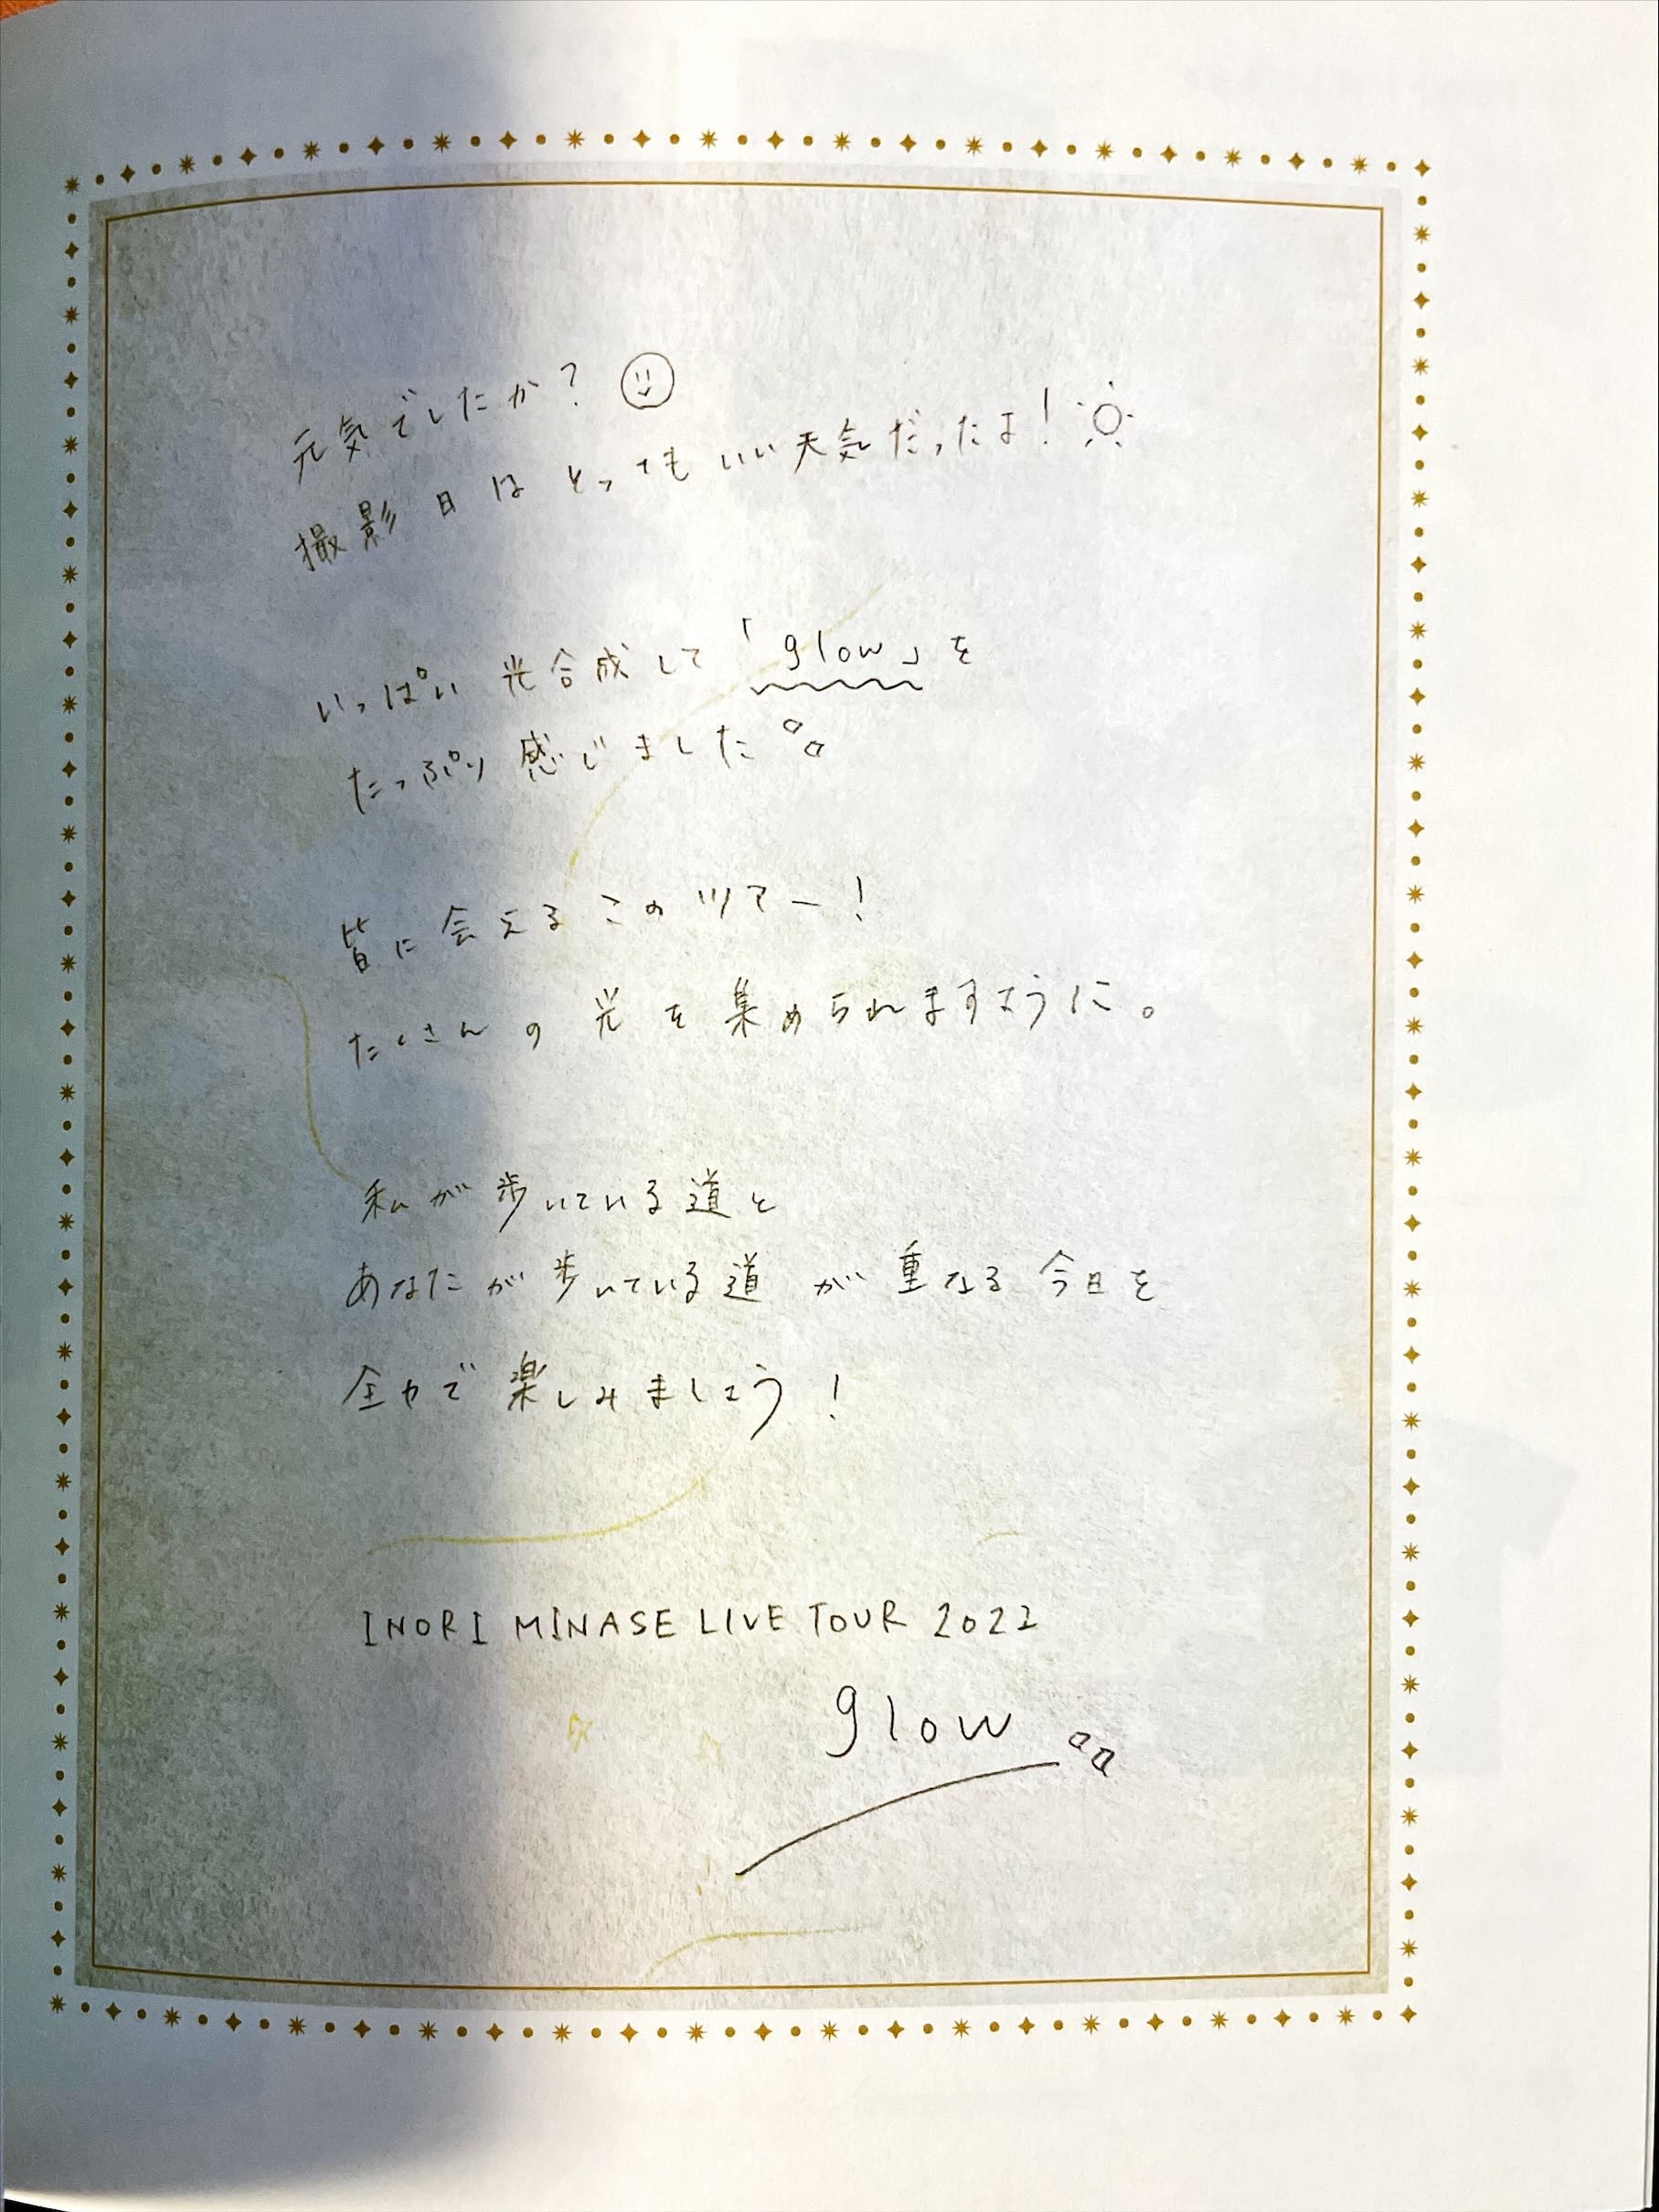 元気でしたか?
撮影日はとってもいい天気だったよ!
いっぱい光合成して「glow」を
たっぷり感じました
皆に会えるこのツアー!
たくさんの光を集められますように。
私が歩いている道と
あなたが歩いている道が重なる今日を
全力で楽しみましょう!
INORI MINASE LIVE TOUR 2022
glow